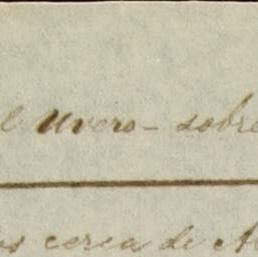 el Uvero - sobre
os cerca de A